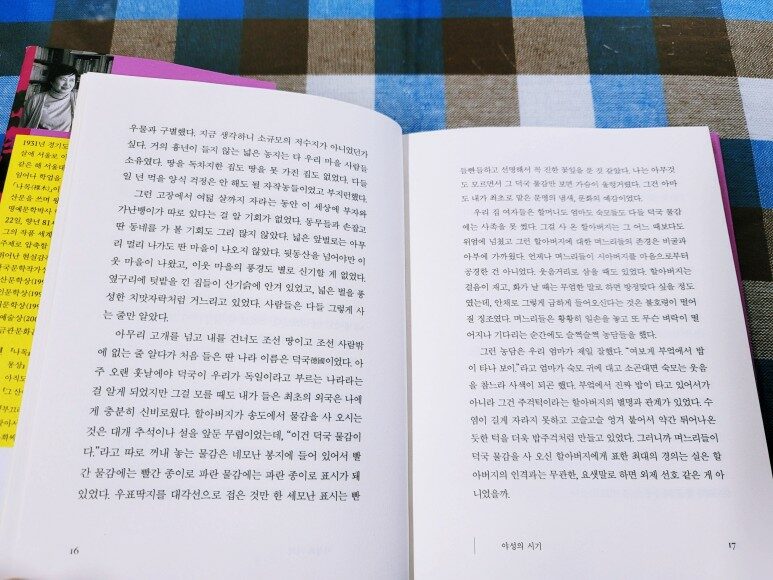 1931년 경기도
22일, 향년 81
우물과 구별했다. 지금 생각하니 소규모의 저수지가 아니었던가
싶다. 거의 흉년이 들지 않는 넓은 농지는 다 우리 마을 사람들
소유였다. 땅을 독차지한 집도 땅을 못 가진 집도 없었다. 다들
일 년 먹을 양식 걱정은 안 해도 될 자작농들이었고 부지런했다.
그런 고장에서 여덟 살까지 자라는 동안 이 세상에 부자와
가난뱅이가 따로 있다는 걸 알 기회가 없었다. 동무들과 손잡고
딴 동네를 가 볼 기회도 그리 많지 않았다. 넓은 앞벌로는 아무
리 멀리 나가도 딴 마을이 나오지 않았다. 뒷동산을 넘어야만 이
웃 마을이 나왔고, 이웃 마을의 풍경도 별로 신기할 게 없었다.
옆구리에 텃밭을 낀 집들이 산기슭에 안겨 있었고, 넓은 벌을 풍
성한 치맛자락처럼 거느리고 있었다. 사람들은 다들 그렇게 사
는 줄만 알았다.
아무리 고개를 넘고 내를 건너도 조선 땅이고 조선 사람밖
에 없는 줄 알다가 처음 들은 딴 나라 이름은 덕국德國이었다. 아
주 오랜 훗날에야 덕국이 우리가 독일이라고 부르는 나라라는
걸 알게 되었지만 그걸 모를 때도 내가 들은 최초의 외국은 나에
게 충분히 신비로웠다. 할아버지가 송도에서 물감을 사 오시는
것은 대개 추석이나 설을 앞둔 무렵이었는데, “이건 덕국 물감이
다.”라고 따로 꺼내 놓는 물감은 네모난 봉지에 들어 있어서 빨
간 물감에는 빨간 종이로 파란 물감에는 파란 종이로 표시가 돼
있었다. 우표딱지를 대각선으로 접은 것만 한 세모난 표시는 빤
16
들빤들하고 선명해서 꼭 진한 꽃잎을 문 것 같았다. 나는 아무것
도 모르면서 그 덕국 물감만 보면 가슴이 울렁거렸다. 그건 아마
도 내가 최초로 맡은 문명의 냄새, 문화의 예감이었다.
우리 집 여자들은 할머니도 엄마도 숙모들도 다들 덕국 물감
에는 사족을 못 썼다. 그걸 사 온 할아버지는 그 어느 때보다도
위엄에 넘쳤고 그런 할아버지에 대한 며느리들의 존경은 비굴과
아부에 가까웠다. 언제나 며느리들이 시아버지를 마음으로부터
공경한 건 아니었다. 웃음거리로 삼을 때도 있었다. 할아버지는
걸음이 재고, 화가 날 때는 무엄한 말로 하면 방정맞다 싶을 정도
였는데, 안채로 그렇게 급하게 들어오신다는 것은 불호령이 떨어
질 징조였다. 며느리들은 황황히 일손을 놓고 또 무슨 벼락이 떨
어지나 기다리는 순간에도 슬쩍슬쩍 농담들을 했다.
그런 농담은 우리 엄마가 제일 잘했다. “여보게 부엌에서 밥
이 타나 보이.”라고 엄마가 숙모 귀에 대고 소곤대면 숙모는 웃음
을 참느라 사색이 되곤 했다. 부엌에서 진짜 밥이 타고 있어서가
아니라 그건 주걱턱이라는 할아버지의 별명과 관계가 있었다. 수
염이 길게 자라지 못하고 고슬고슬 엉겨 붙어서 약간 튀어나온
듯한 턱을 더욱 밥주걱처럼 만들고 있었다. 그러니까 며느리들이
덕국 물감을 사 오신 할아버지에게 표한 최대의 경의는 실은 할
아버지의 인격과는 무관한, 요샛말로 하면 외제 선호 같은 게 아
니었을까.
야성의 시기
17